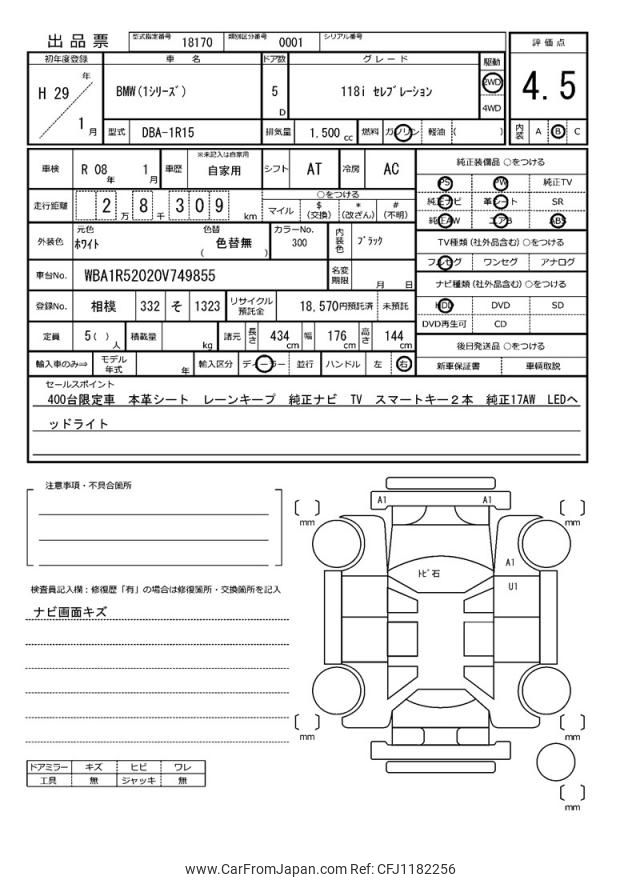 出品票 型式指定番号 18170 類別区分番号 0001 シリアル番号
評価点
4.5
内装 A B C
初年度登録 車名 ドア数 グレード 駆動
H 29 年 1 月
BMW(1シリーズ) 5 D 118i セレブレーション 2WD 4WD
型式 DBA-1R15 排気量 1.500 cc 燃料 ガソリン 軽油 ( )
車検 R 08 年 1 月 車歴 ※未記入は自家用 自家用 シフト AT 冷房 AC
走行距離 2 万 8 千 3 0 9 km ○をつける マイル $(交換) *(改ざん) #(不明)
外装色 元色 ホワイト 色替 ( 色替無 ) カラーNo. 300 内装色 ブラック
車台No. WBA1R52020V749855 名変期限 月 日
登録No. 相模 332 そ 1323 リサイクル預託金 18,570円預託済 未預託
定員 5( ) 人 積載量 kg 諸元 長さ 434 cm 幅 176 cm 高さ 144 cm
輸入車のみ⇒ モデル年式 年 輸入区分 ディーラー 並行 ハンドル 左 右
純正装備品 ○をつける
PS PW 純正TV
純正ナビ 革シート SR
純正AW エアB ABS
TV種類(社外品含む) ○をつける
フルセグ ワンセグ アナログ
ナビ種類(社外品含む) ○をつける
HDD DVD SD
DVD再生可 CD
後日発送品 ○をつける
新車保証書 車輌取説
セールスポイント
400台限定車 本革シート レーンキープ 純正ナビ TV スマートキー2本 純正17AW LEDヘ
ッドライト
注意事項・不具合箇所
検査員記入欄:修復歴「有」の場合は修復箇所・交換箇所を記入
ナビ画面キズ
ドアミラー キズ ヒビ ワレ
工具 無 ジャッキ 無
A1 A1
[ ] mm [ ] mm
A1
トビ石
U1
[ ] mm [ ] mm
[ ] mm
www.CarFromJapan.com Ref: CFJ1182256